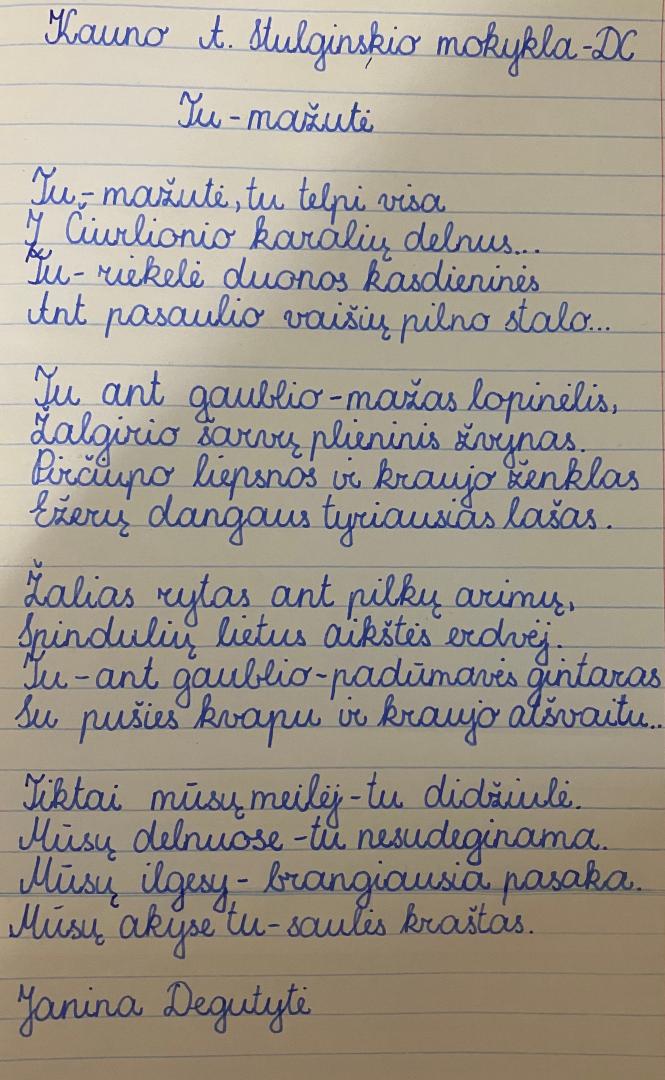 Kauno A. Stulginskio mokykla-DC
Tu-mažutė
Tu,-mažutė, tu telpi visa
Į Čiurlionio karalių delnus...
Tu-riekelė duonos kasdieninės
Ant pasaulio vaišių pilno stalo...
Tu ant gaublio-mažas lopinėlis,
Žalgirio šarvų plieninis žvynas.
Pirčiupo liepsnos ir kraujo ženklas
Ežerų dangaus tyriausias lašas.
Žalias rytas ant pilkų arimų,
Spindulių lietus aikštės erdvėj.
Tu-ant gaublio-padūmavęs gintaras
Su pušies kvapu ir kraujo atšvaitu...
Tiktai mūsų meilėj-tu didžiulė.
Mūsų delnuose-tu nesudeginama.
Mūsų ilgesy-brangiausia pasaka.
Mūsų akyse tu-saulės kraštas.
Janina Degutytė